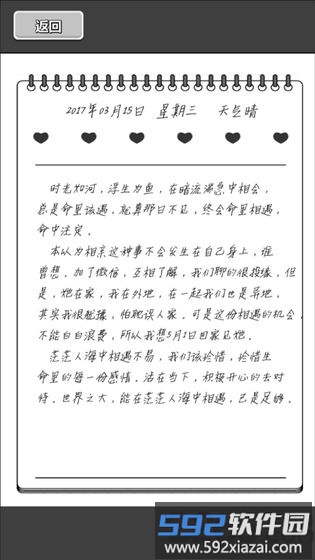 返回
2017年03月15日 星期三 天气晴
时光如河，浮生为鱼，在暗流湍急中相会，
总是命里该遇，就算那日不见，终会命里相遇，
命中注定。
本以为相亲这种事不会发生在自己身上，谁
曾想。加了微信，互相了解，我们聊的很投缘，但
是，她在家，我在外地，在一起我们也是异地，
其实我很尴尬，怕耽误人家。可是这份相遇的机会，
不能白白浪费，所以我想5月1日回家见她。
茫茫人海中相遇不易，我们该珍惜，珍惜生
命里的每一份感情。活在当下，积极开心的去对
待。世界之大，能在茫茫人海中相遇，已是足够。
592软件园
www.592xiazai.com